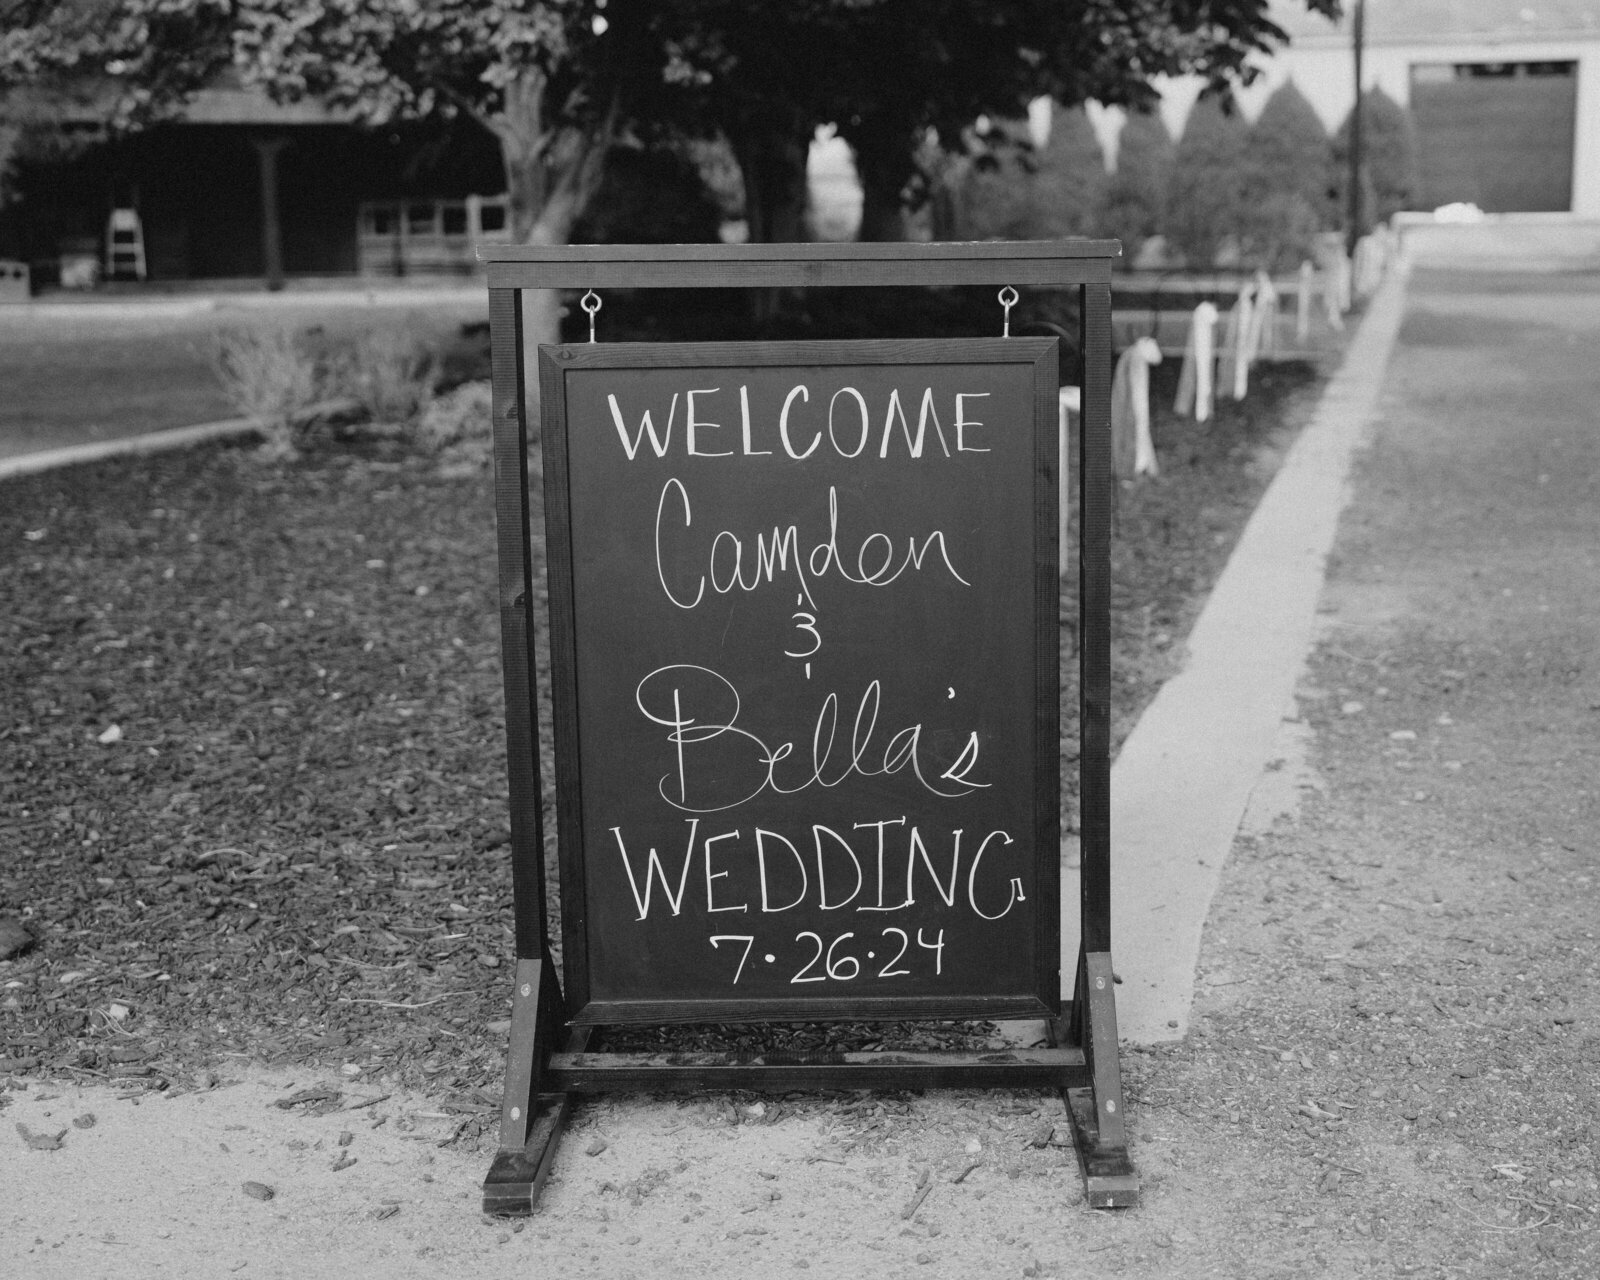 WELCOME
Camden
&
Bella's
WEDDING
7·26·24